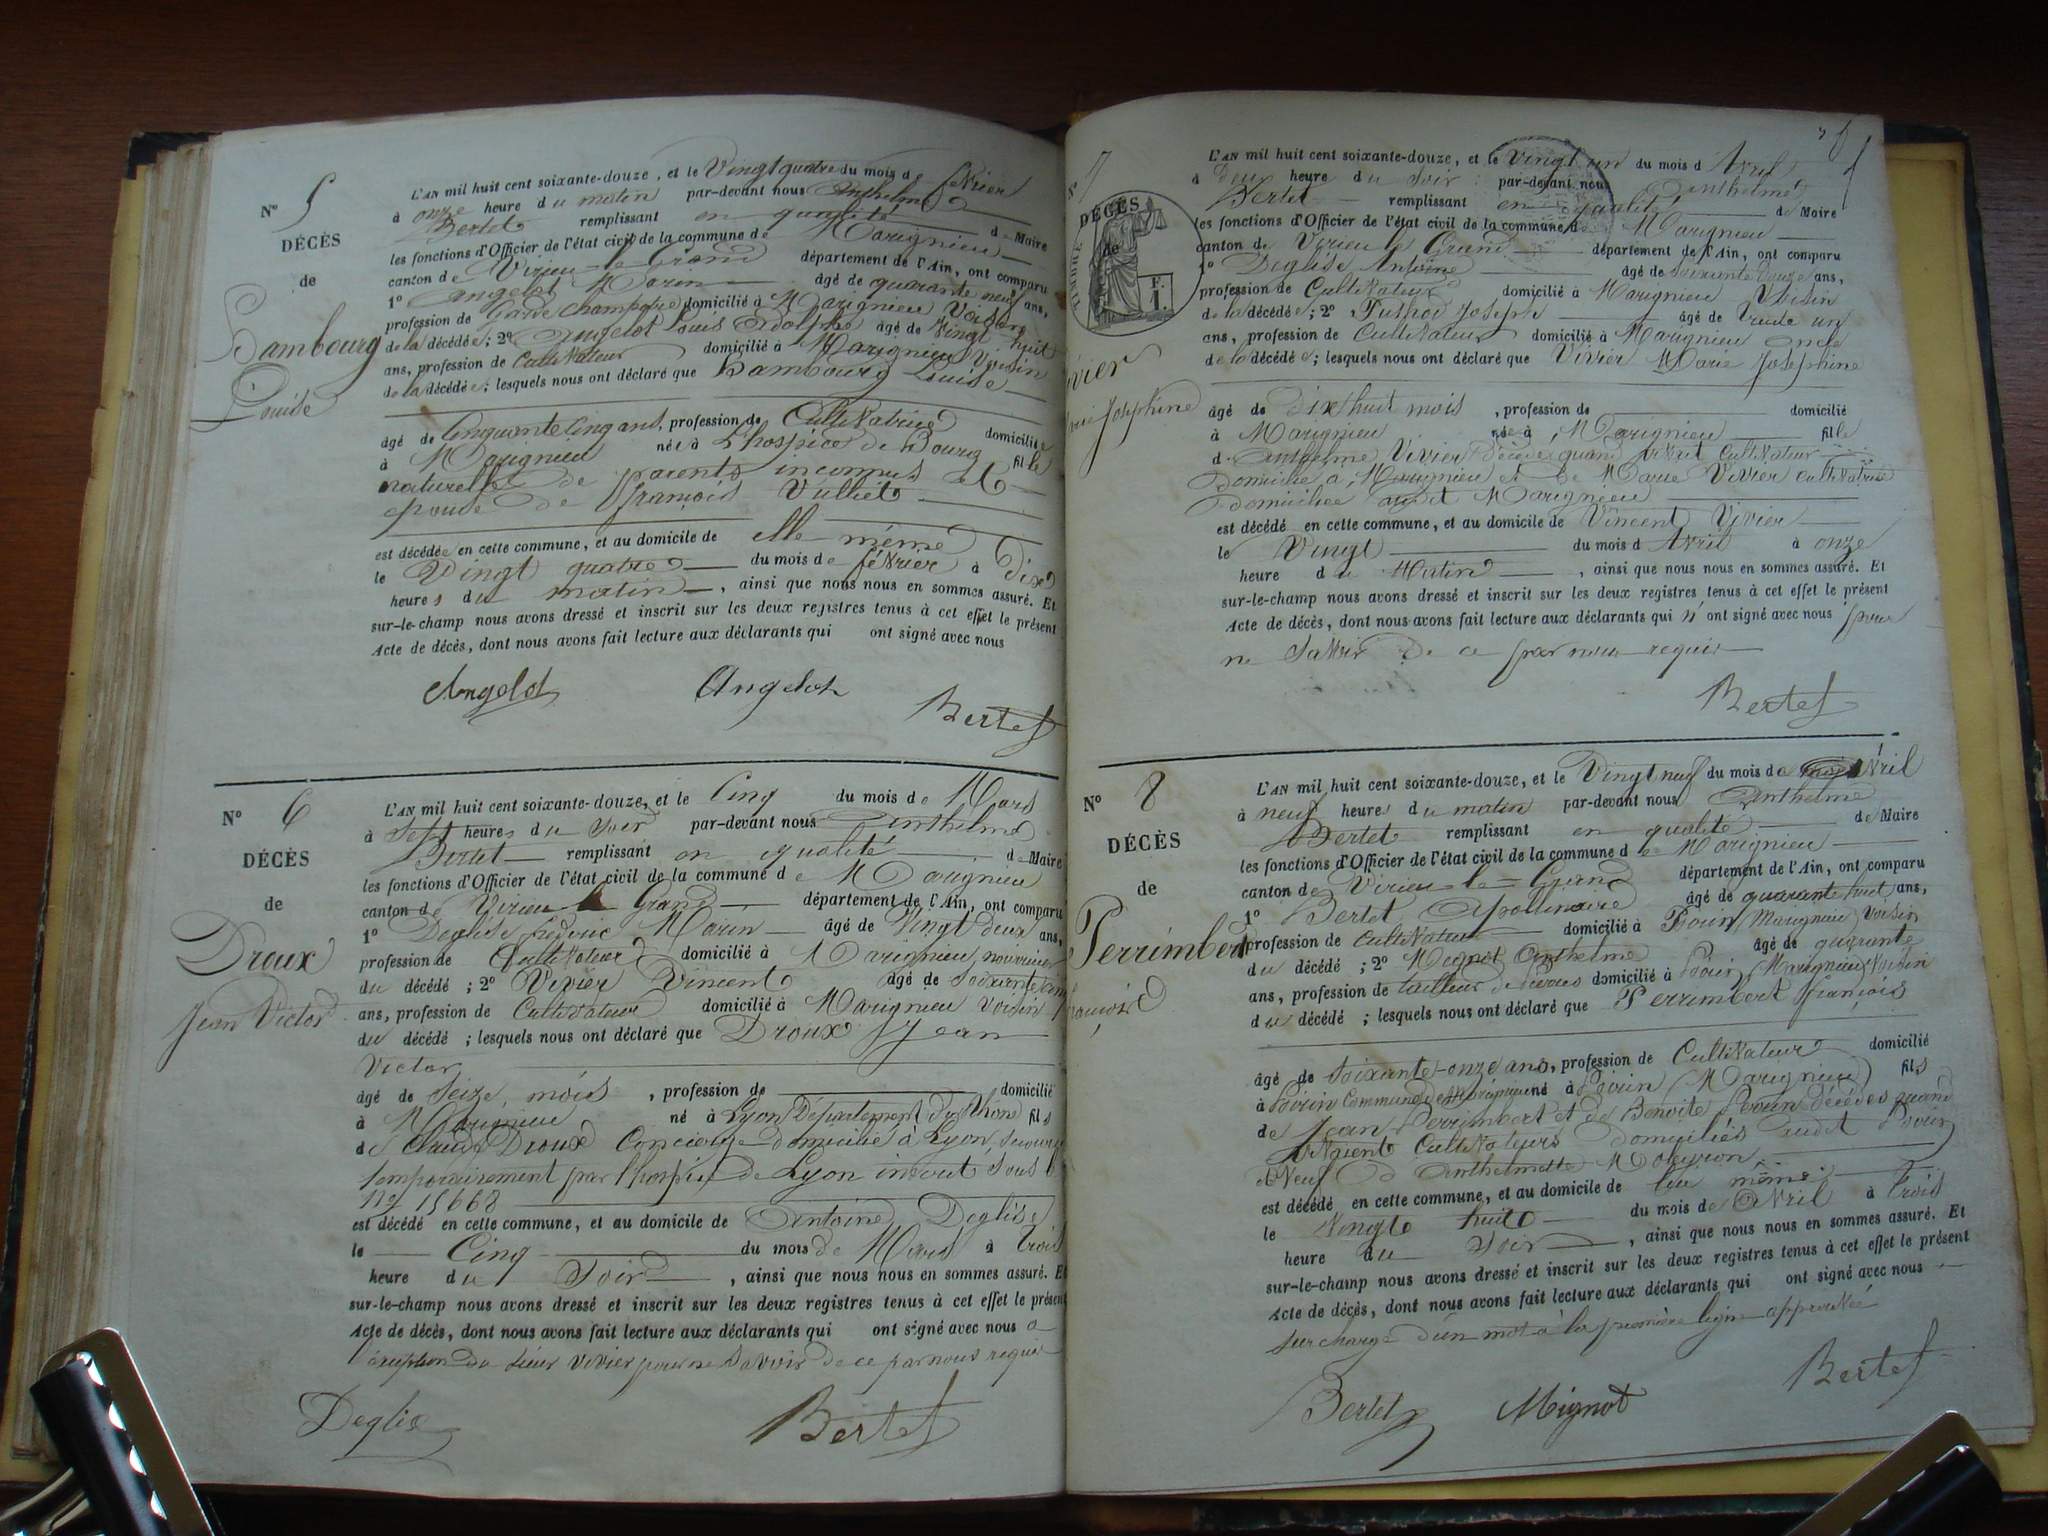 N° 5
DÉCÈS
de
Hambourg
Louise
L'AN mil huit cent soixante-douze, et le Vingt quatre du mois de février
à onze heure du matin par-devant nous Anthelme
Bertet remplissant en qualité de Maire
les fonctions d'Officier de l'état civil de la commune de Marignieu
canton de Virieu-le-Grand département de l'Ain, ont comparu
1° Angelot Marin âgé de quarante neuf ans,
profession de Garde champêtre domicilié à Marignieu Voisin
de la décédée; 2° Angelot Louis Adolphe âgé de Vingt huit
ans, profession de Cultivateur domicilié à Marignieu Voisin
de la décédée; lesquels nous ont déclaré que Hambourg Louise
âgé de Cinquante cinq ans, profession de Cultivatrice domiciliée
à Marignieu née à L'hospice de Bourg fille
naturelle de parents inconnus et
épouse de François Vulliet
est décédée en cette commune, et au domicile de elle même
le Vingt quatre du mois de février à Dix
heures du matin, ainsi que nous nous en sommes assuré. Et
sur-le-champ nous avons dressé et inscrit sur les deux registres tenus à cet effet le présent
Acte de décès, dont nous avons fait lecture aux déclarants qui ont signé avec nous
Angelot Angelot
Bertet
N° 6
DÉCÈS
de
Droux
Jean Victor
L'AN mil huit cent soixante-douze, et le Cinq du mois de Mars
à Sept heures du Soir par-devant nous Anthelme
Bertet remplissant en qualité de Maire
les fonctions d'Officier de l'état civil de la commune de Marignieu
canton de Virieu le Grand département de l'Ain, ont comparu
1° Deglise fréderic Marin âgé de Vingt Deux ans,
profession de Cultivateur domicilié à Marignieu nourricier
du décédé; 2° Vivier Vincent âgé de Soixante cinq
ans, profession de Cultivateur domicilié à Marignieu Voisin
du décédé; lesquels nous ont déclaré que Droux Jean
Victor
âgé de Seize mois, profession de domicilié
à Marignieu né à Lyon Département du Rhône fils
de Claude Droux Concierge domicilié à Lyon, secouru
temporairement par l'hospice de Lyon inscrit sous le
n° 15668
est décédé en cette commune, et au domicile de Antoine Deglise
le Cinq du mois de Mars à trois
heure du Soir, ainsi que nous nous en sommes assuré. Et
sur-le-champ nous avons dressé et inscrit sur les deux registres tenus à cet effet le présent
Acte de décès, dont nous avons fait lecture aux déclarants qui ont signé avec nous a
l'éxeption du sieur Vivier pour ne savoir de ce par nous requis
Deglise Bertet
N° 7
DÉCÈS
de
TIMBRE
F.
1.
vier
Josephine
L'AN mil huit cent soixante-douze, et le Vingt un du mois d Avril
à Deux heure du Soir par-devant nous Anthelme
Bertet remplissant en qualité de Maire
les fonctions d'Officier de l'état civil de la commune d Marignieu
canton de Virieu le Grand département de l'Ain, ont comparu
1° Deglise Antoine âgé de Soixante Douze ans,
profession de Cultivateur domicilié à Marignieu Voisin
de la décédée; 2° Joseph âgé de trente un
ans, profession de Cultivateur domicilié à Marignieu oncle
de la décédée; lesquels nous ont déclaré que Vivier Marie Josephine
âgé de Dix huit mois, profession de domicilié
à Marignieu née à Marignieu fille
d Anthelme Vivier Décédé quand vivait Cultivateur
Domicilié à Marignieu et de Marie Vivier cultivatrice
Domiciliée audit Marignieu
est décédé en cette commune, et au domicile de Vincent Vivier
le Vingt du mois d Avril à onze
heure du Matin, ainsi que nous nous en sommes assuré. Et
sur-le-champ nous avons dressé et inscrit sur les deux registres tenus à cet effet le présent
Acte de décès, dont nous avons fait lecture aux déclarants qui n'ont signé avec nous pour
ne Savoir de ce par nous requis
Bertet
N° 8
DÉCÈS
de
Perrimbert
françois
L'AN mil huit cent soixante-douze, et le Vingt neuf du mois de Avril
à neuf heures du matin par-devant nous Anthelme
Bertet remplissant en qualité de Maire
les fonctions d'Officier de l'état civil de la commune de Marignieu
canton de Virieu-le-Grand département de l'Ain, ont comparu
1° Bertet Apollinaire âgé de quarante huit ans,
profession de Cultivateur domicilié à Poirin, Marignieu Voisin
du décédé; 2° Mignot Anthelme âgé de quarante
ans, profession de tailleur de Pierres domicilié à Poirin, Marignieu Voisin
du décédé; lesquels nous ont déclaré que Perrimbert françois
âgé de Soixante-onze ans, profession de Cultivateur domicilié
à Poirin Commune de Marignieu né à Poirin (Marignieu) fils
de Jean Perrimbert et de Benoite décédés quand
Vivaient Cultivateurs Domiciliés audit Poirin
Veuf d Anthelmette
est décédé en cette commune, et au domicile de lui même
le Vingt huit du mois de Avril à trois
heure du Soir, ainsi que nous nous en sommes assuré. Et
sur-le-champ nous avons dressé et inscrit sur les deux registres tenus à cet effet le présent
Acte de décès, dont nous avons fait lecture aux déclarants qui ont signé avec nous
Surcharge d'un mot à la première ligne approuvée
Bertet Mignot Bertet